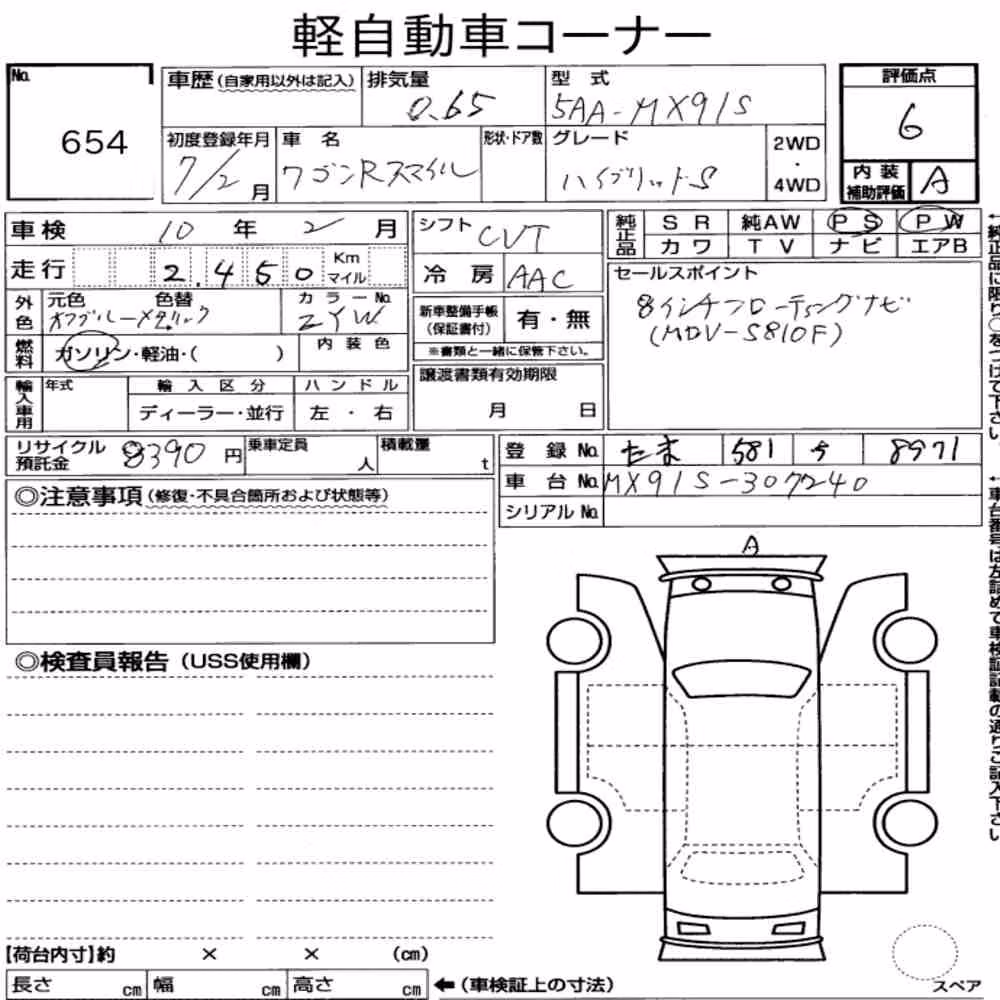 軽自動車コーナー
No. 654
車歴(自家用以外は記入) 排気量 0.65 型式 5AA-MX91S
評価点 6
初度登録年月 7/2月 車名 ワゴンRスマイル 形状・ドア数 グレード ハイブリッドS 2WD・4WD
内装補助評価 A
車検 10年2月
走行 2.450 Km マイル
外色 元色 色替 オフブルーメタリック カラーNo. ZYW
燃料 ガソリン・軽油・( ) 内装色
輸入車用 年式 輸入区分 ディーラー・並行 ハンドル 左・右
シフト CVT
冷房 AAC
新車整備手帳(保証書付) 有・無
※書類と一緒に保管下さい。
譲渡書類有効期限 月 日
純正品 SR 純AW PS PW
カワ TV ナビ エアB
セールスポイント
8インチフローティングナビ
(MDV-S810F)
リサイクル預託金 8390円 乗車定員 人 積載量 t
登録No. たま 581 ち 8971
車台No. MX91S-307240
シリアルNo.
◎注意事項(修復・不具合箇所および状態等)
◎検査員報告(USS使用欄)
A
スペア
【荷台内寸】約 × × (cm)
長さ cm 幅 cm 高さ cm ←(車検証上の寸法)
←純正品に限り○をつけて下さい。
←車台番号は左詰めで車検証記載の通りご記入下さい